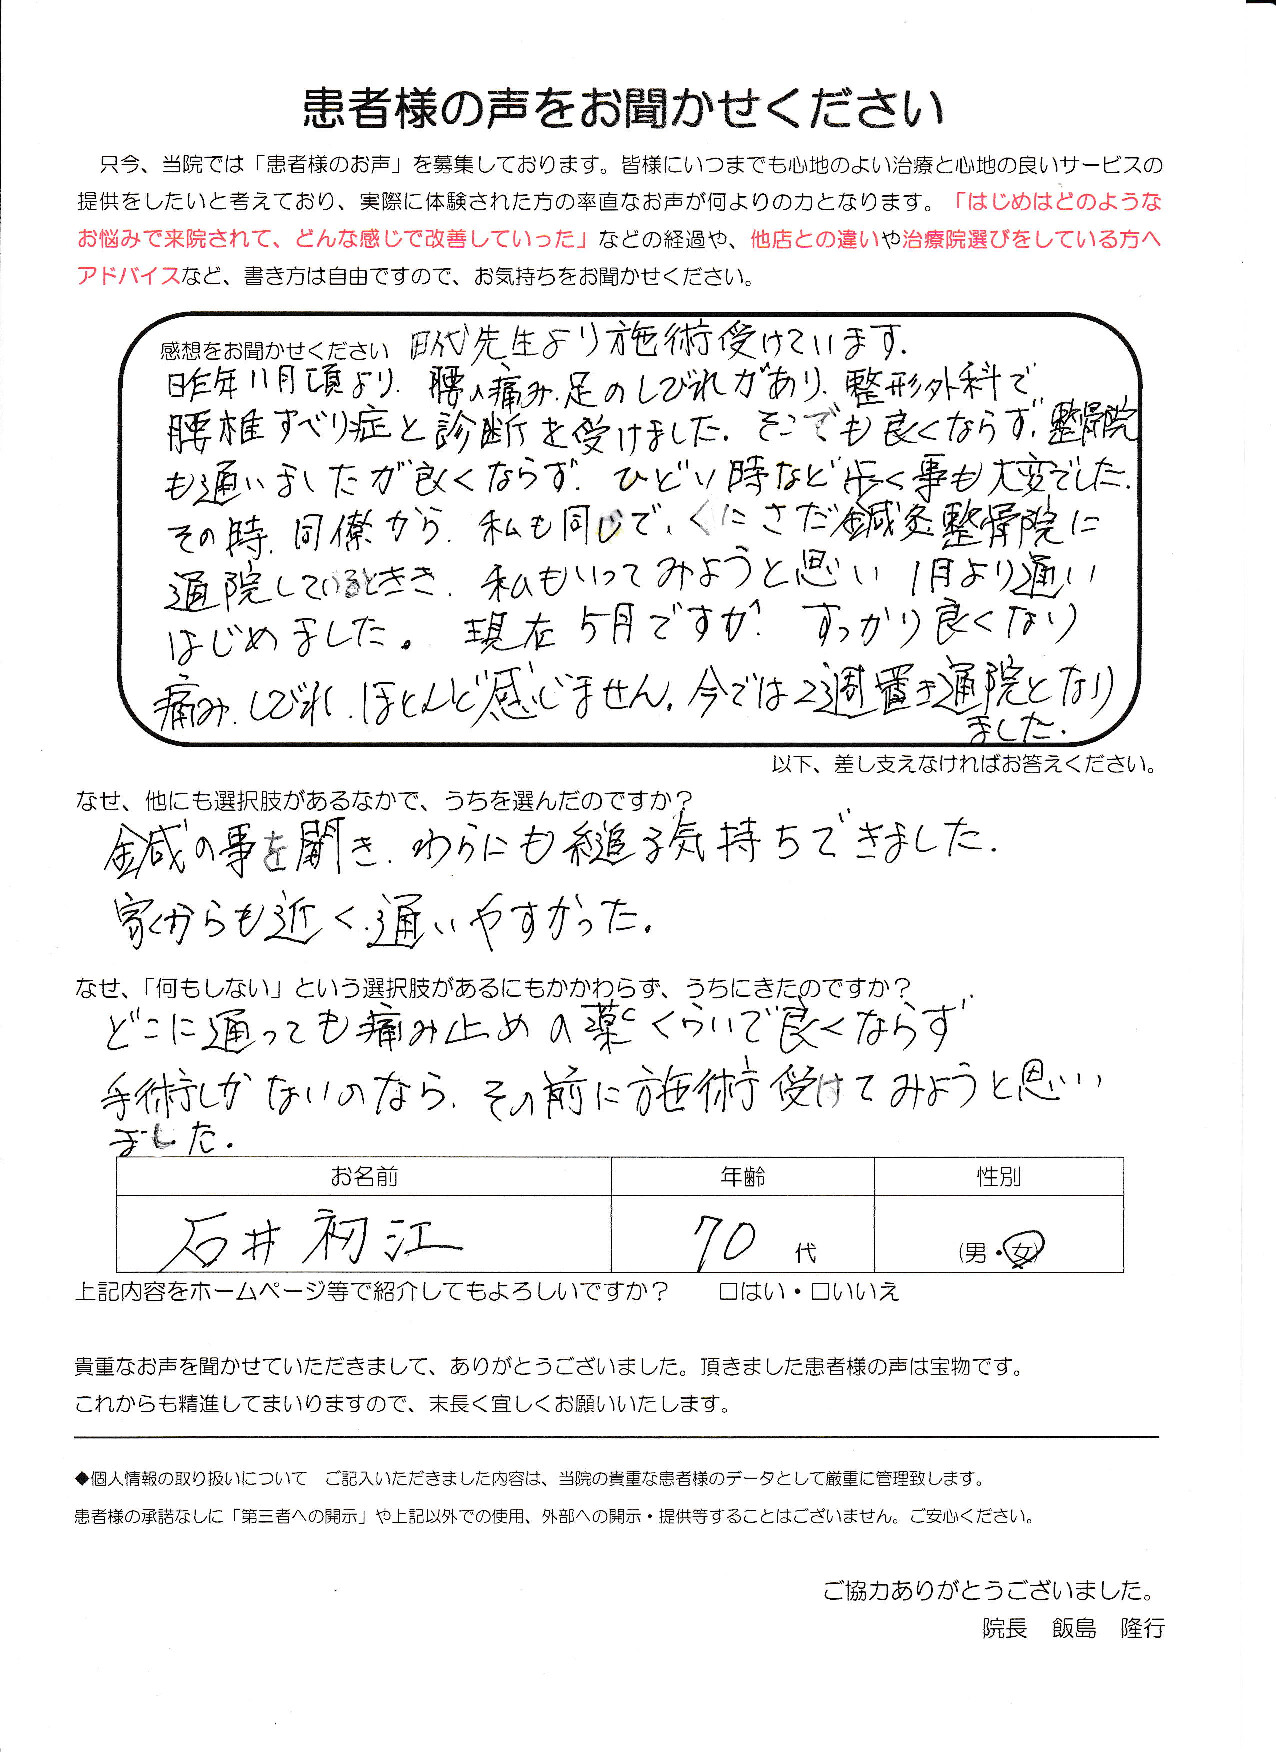 患者様の声をお聞かせください
只今、当院では「患者様のお声」を募集しております。皆様にいつまでも心地のよい治療と心地の良いサービスの
提供をしたいと考えており、実際に体験された方の率直なお声が何よりの力となります。「はじめはどのような
お悩みで来院されて、どんな感じで改善していった」などの経過や、他店との違いや治療院選びをしている方へ
アドバイスなど、書き方は自由ですので、お気持ちをお聞かせください。
感想をお聞かせください 田代先生より施術受けています.
昨年11月頃より. 腰の痛み.足のしびれがあり.整形外科で
腰椎すべり症と診断を受けました. そこでも良くならず.整骨院
も通いましたが良くならず. ひどい時など歩く事も大変でした.
その時. 同僚から. 私も同じで、くにさだ鍼灸整骨院に
通院しているときき. 私もいってみようと思い 1月より通い
はじめました。 現在5月ですが. すっかり良くなり
痛み.しびれ.ほとんど感じません.今では2週置き通院となり
ました.
以下、差し支えなければお答えください。
なぜ、他にも選択肢があるなかで、うちを選んだのですか？
鍼の事を聞き.わらにも縋る気持ちできました.
家からも近く.通いやすかった.
なぜ、「何もしない」という選択肢があるにもかかわらず、うちにきたのですか？
どこに通っても痛み止めの薬くらいで良くならず
手術しかないのなら. その前に施術受けてみようと思い
ました.
お名前 年齢 性別
石井初江 70 代 (男・女)
上記内容をホームページ等で紹介してもよろしいですか？ □はい・□いいえ
貴重なお声を聞かせていただきまして、ありがとうございました。頂きました患者様の声は宝物です。
これからも精進してまいりますので、末長く宜しくお願いいたします。
◆個人情報の取り扱いについて ご記入いただきました内容は、当院の貴重な患者様のデータとして厳重に管理致します。
患者様の承諾なしに「第三者への開示」や上記以外での使用、外部への開示・提供等することはございません。ご安心ください。
ご協力ありがとうございました。
院長 飯島 隆行